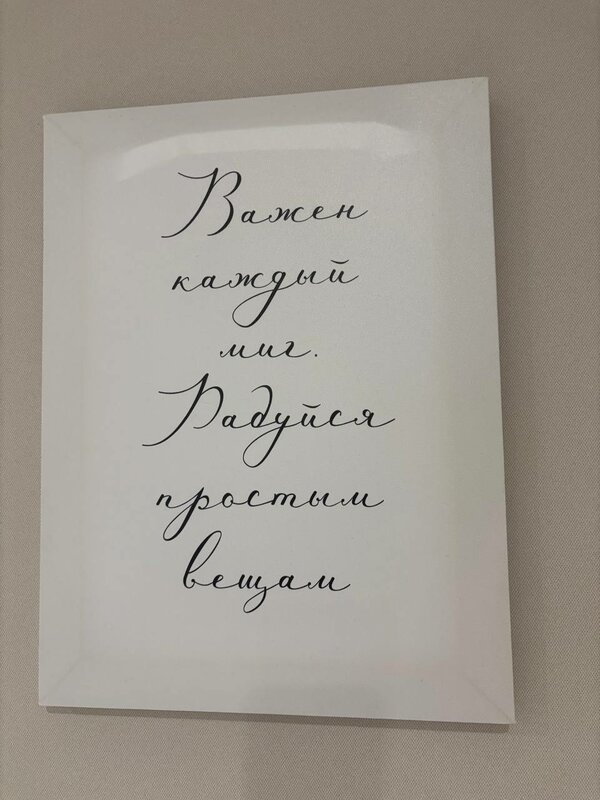 Важен
каждый
миг.
Радуйся
простым
вещам